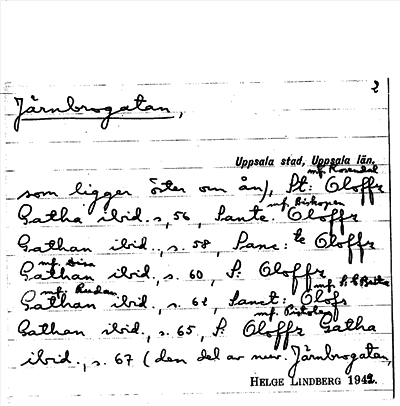 2
Järnbrogatan,
Uppsala stad, Uppsala län.
mf. Rosendal
som ligger öster om ån), St: Oloffz
mf. Biskopen
Gatha ibid. s, 56, Sante. Oloffz
Gathan ibid., s. 58, Sanc: te Oloffz
mf. Disa
Gathan ibid. s. 60, S: Oloffz
mf. Rudan mf. S:t Brita
Gathan ibid., s. 62, Sanct: Olofs
mf. Pistolen
Gathan ibid., s. 65, S. Oloffz Gatha
ibid., s. 67 (den del av nuv. Järnbrogatan,
HELGE LINDBERG 1942.